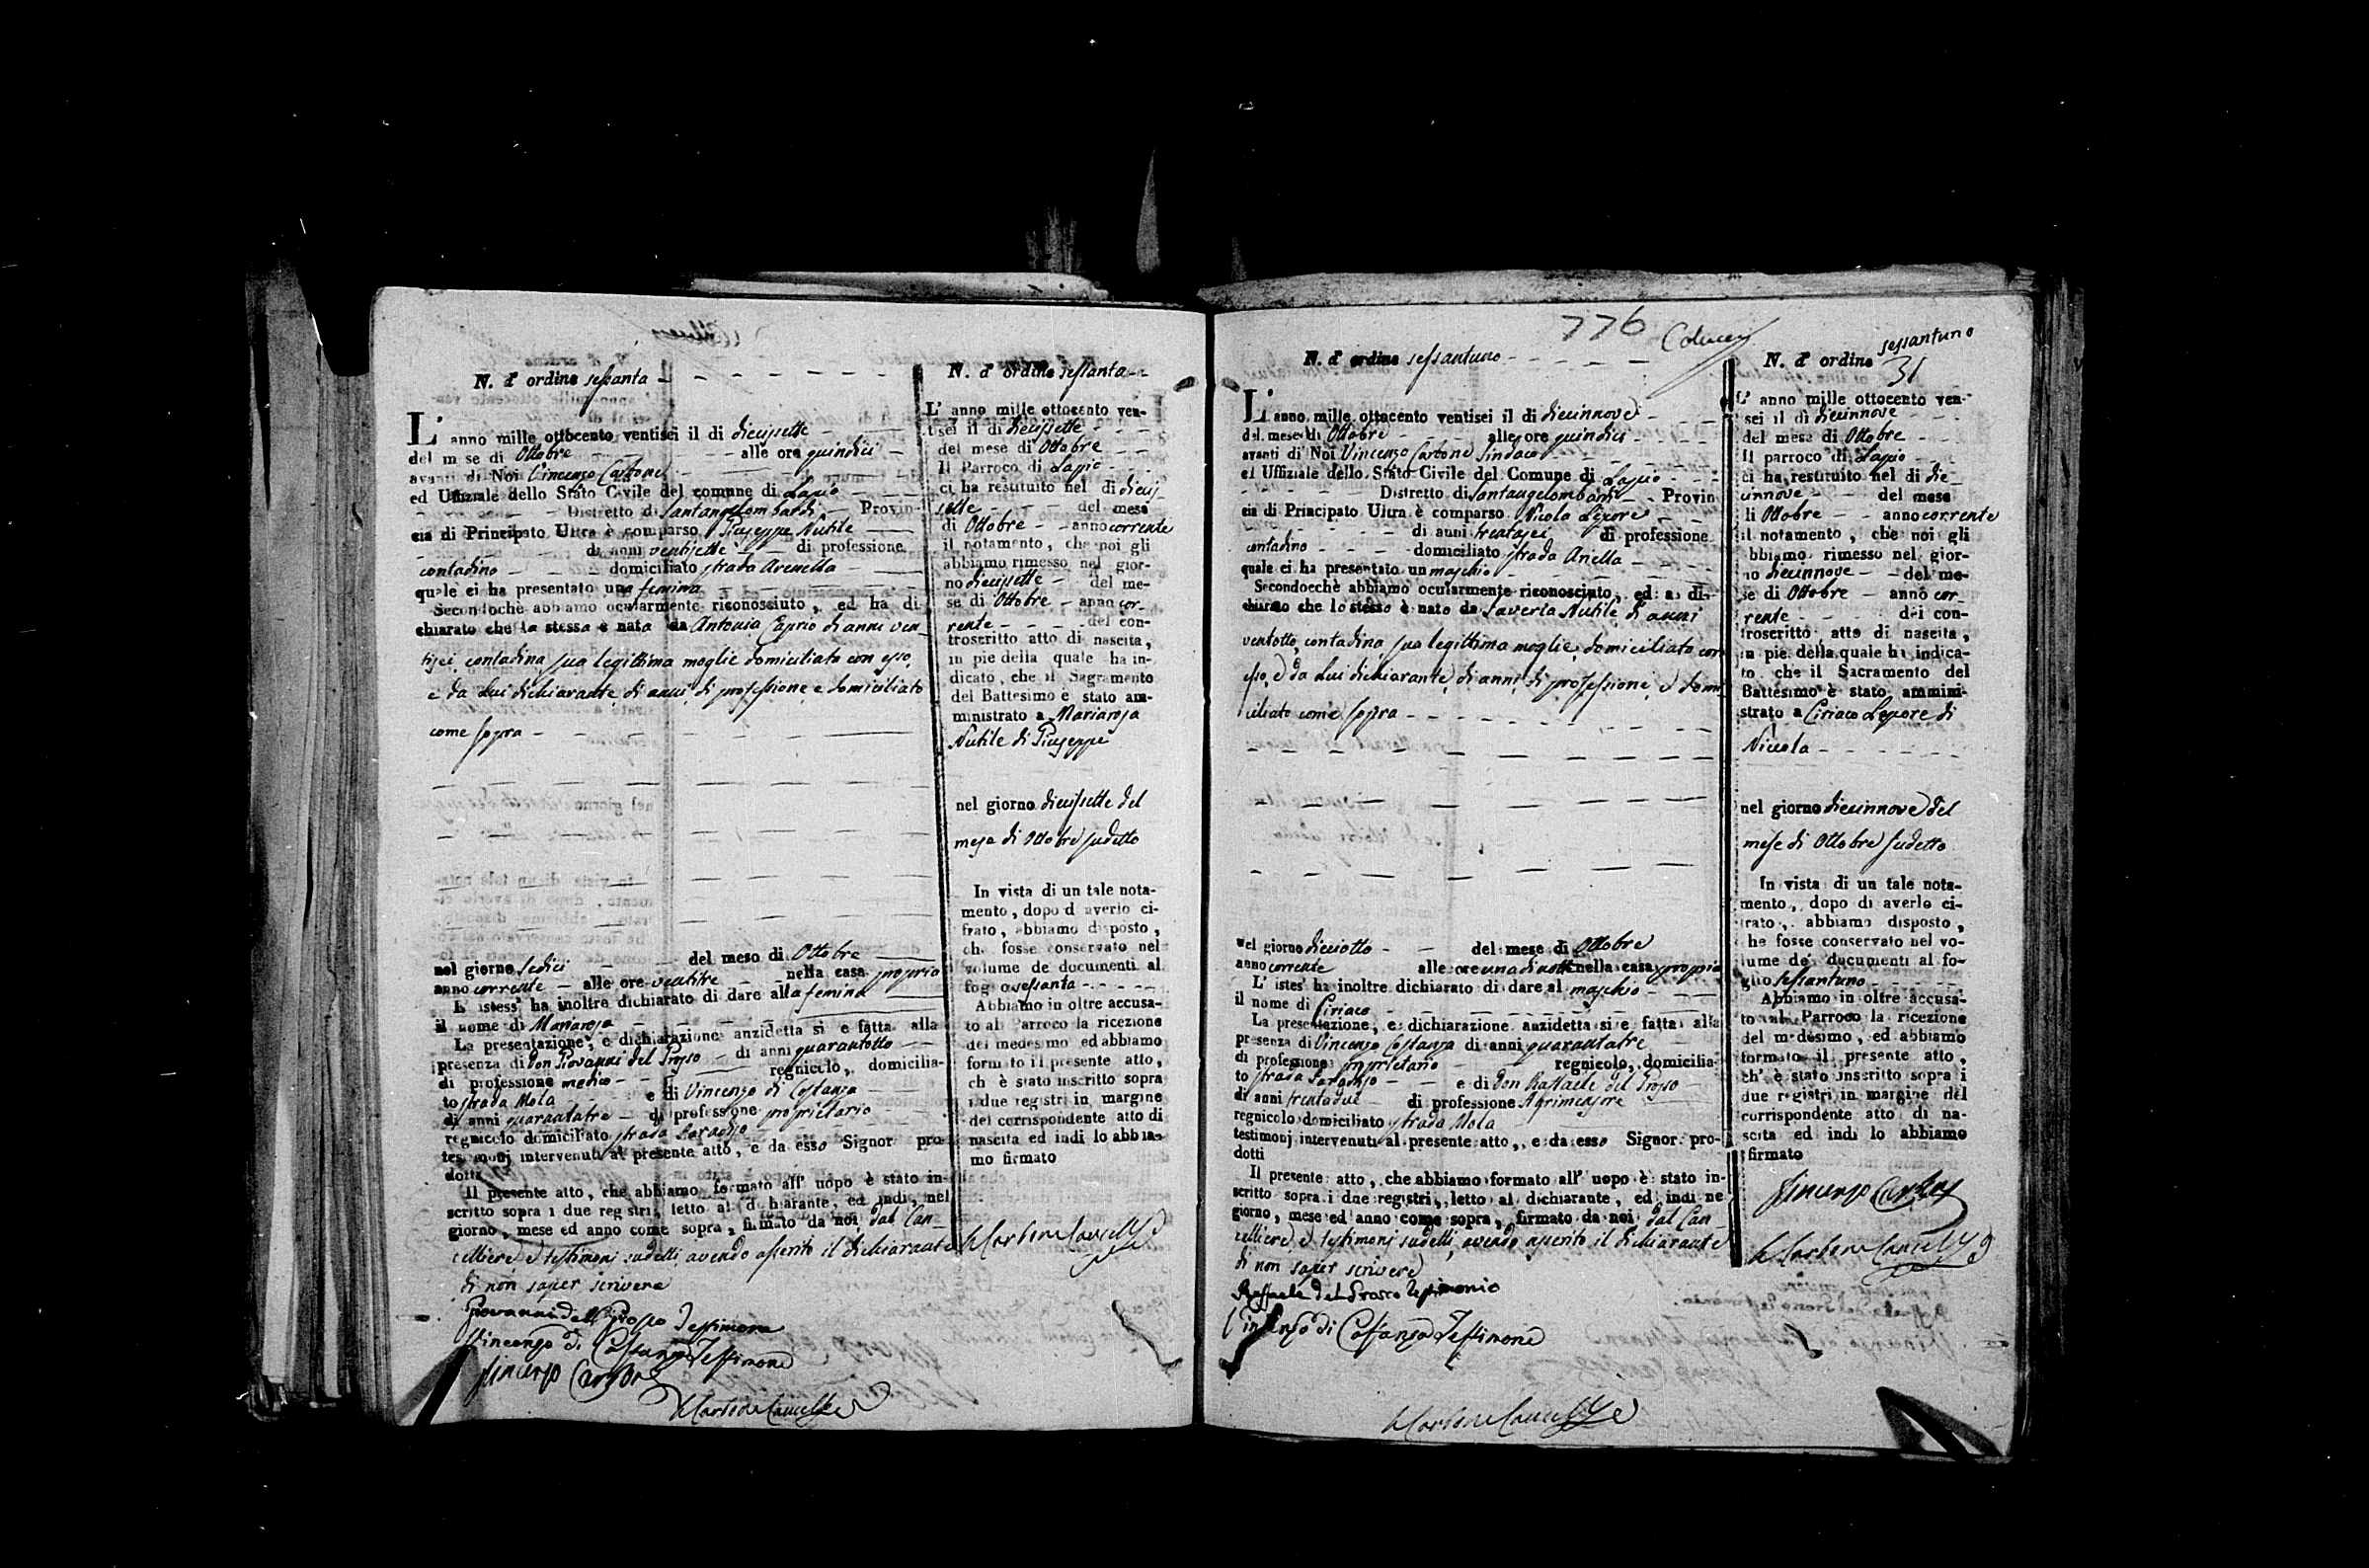 N. d' ordine sessanta
L' anno mille ottocento ventisei il di diecisette
del mese di Ottobre alle ore quindici
avanti di Noi Vincenzo Carbone
ed Uffiziale dello Stato Civile del comune di Lapio
Distretto di Santangelombardi Provin-
cia di Principato Ultra è comparso Giuseppe Nutile
di anni ventisette di professione
contadino domiciliato strada Arenella
quale ci ha presentato una femina
Secondochè abbiamo ocularmente riconosciuto, ed ha di
chiarato che la stessa è nata da Antonia Caprio di anni ven-
tisei contadina sua legittima moglie domiciliata con esso,
e da Lui dichiarante, di anni, di professione e domiciliato
come sopra
nel giorno sedici del mese di Ottobre
anno corrente alle ore ventitre nella casa propria
L' istess' ha inoltre dichiarato di dare alla femina
il nome di Mariarosa
La presentazione, e dichiarazione anzidetta si è fatta alla
presenza di Don Giovanni del Grosso di anni quarantotto
di professione medico regnicolo, domicilia-
to strada Mola e di Vincenzo di Costanza
di anni quarantatre di professione proprietario
regnicolo domiciliato strada
testimonj intervenuti al presente atto, e da esso Signor pro-
dotti
Il presente atto, che abbiamo formato all' uopo è stato in-
scritto sopra i due registri, letto al dichiarante, ed indi, nel
giorno, mese ed anno come sopra, firmato da noi, dal Can-
celliere e testimonj sudetti, avendo asserito il dichiarante
di non saper scrivere
Giovanni del Grosso Testimone
Vincenzo di Costanza Testimone
Vincenzo Carbone
N. d' ordine sessanta
L' anno mille ottocento ven-
tisei il di diecisette
del mese di Ottobre
Il Parroco di Lapio
ci ha restituito nel di dieci-
sette del mese
di Ottobre anno corrente
il notamento, che noi gli
abbiamo rimesso nel gior-
no diecisette del me-
se di Ottobre anno cor-
rente del con-
troscritto atto di nascita,
in pie della quale ha in-
dicato, che il Sagramento
del Battesimo è stato am-
ministrato a Mariarosa
Nutile di Giuseppe
nel giorno diecisette del
mese di Ottobre sudetto
In vista di un tale nota-
mento, dopo d averlo ci-
frato, abbiamo disposto,
che fosse conservato nel
volume de documenti al
foglio sessanta
Abbiamo in oltre accusa-
to al Parroco la ricezione
del medesimo ed abbiamo
formato il presente atto,
ch è stato inscritto sopra
i due registri in margine
del corrispondente atto di
nascita ed indi lo abbia-
mo firmato
776
N. d' ordine sessantuno
L' anno mille ottocento ventisei il di diecinnove
del mese di Ottobre alle ore quindici
avanti di Noi Vincenzo Carbone Sindaco
ed Uffiziale dello Stato Civile del Comune di Lapio
Distretto di Santangelombardi Provin
cia di Principato Ultra è comparso Nicola Lepore
di anni trentasei di professione
contadino domiciliato strada Anella
quale ci ha presentato un maschio
Secondoechè abbiamo ocularmente riconosciuto, ed a di-
chiarato che lo stesso è nato da Saveria Nutile di anni
ventotto, contadina, sua legittima moglie, domiciliata con
esso, e da Lui dichiarante, di anni, di professione, e domi-
ciliato come sopra
nel giorno dieciotto del mese di Ottobre
anno corrente alle ore una di notte nella casa propria
L' istes' ha inoltre dichiarato di dare al maschio
il nome di Ciriaco
La presentazione, e dichiarazione anzidetta si è fatta alla
presenza di Vincenzo Costanza di anni quarantatre
di professione proprietario regnicolo, domicilia-
to strada e di Don Raffaele del Grosso
di anni trentadue di professione Agrimensore
regnicolo domiciliato strada Mola
testimonj intervenuti al presente atto, e da esso Signor pro-
dotti
Il presente atto, che abbiamo formato all' uopo è stato in-
scritto sopra i due registri, letto al dichiarante, ed indi ne
giorno, mese ed anno come sopra, firmato da noi, dal Can-
celliere, e testimonj sudetti, avendo asserito il dichiarante
di non saper scrivere
Raffaele del Grosso testimonio
Vincenzo di Costanza Testimone
N. d' ordine sessantuno
31
L' anno mille ottocento ven-
sei il di diecinnove
del mese di Ottobre
Il parroco di Lapio
ci ha restituito nel di die-
cinnove del mese
di Ottobre anno corrente
il notamento, che noi gli
abbiamo rimesso nel gior-
no diecinnove del me-
se di Ottobre anno cor-
rente del con-
troscritto atto di nascita,
in pie della quale ha indica-
to che il Sacramento del
Battesimo è stato ammini-
strato a Ciriaco Lepore di
Niccola
nel giorno diecinnove del
mese di Ottobre sudetto
In vista di un tale nota-
mento, dopo di averlo ci-
frato, abbiamo disposto,
che fosse conservato nel vo-
lume de' documenti al fo-
glio sessantuno
Abbiamo in oltre accusa-
to al Parroco la ricezione
del medesimo, ed abbiamo
formato il presente atto,
ch' è stato inscritto sopra i
due registri in margine del
corrispondente atto di na-
scita ed indi lo abbiamo
firmato
Vincenzo Carbone